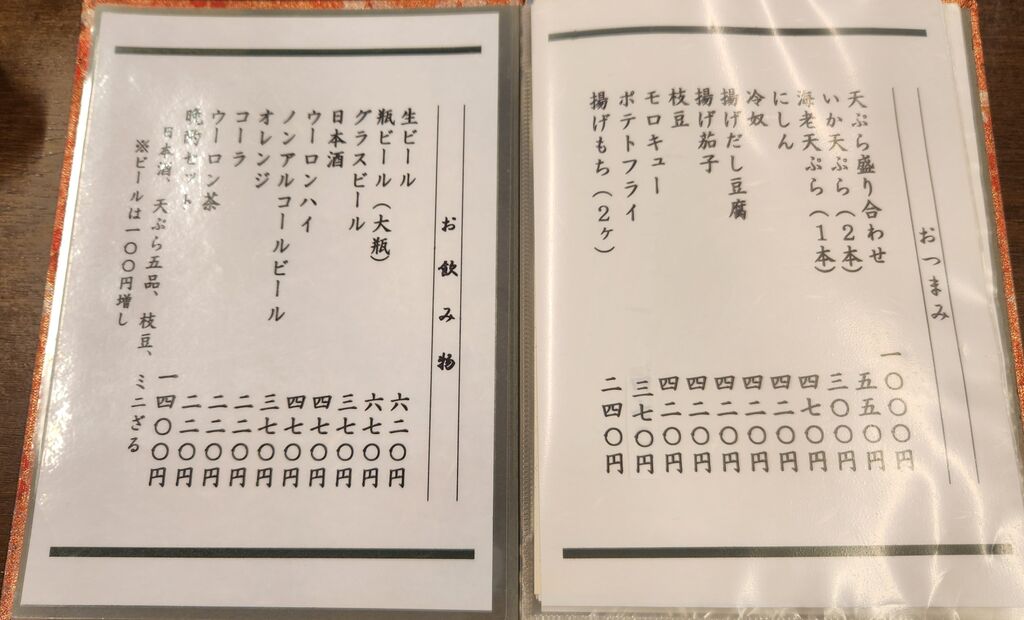 おつまみ
天ぷら盛り合わせ 一〇〇〇円
いか天ぷら(2本) 五五〇円
海老天ぷら(1本) 三〇〇円
にしん 四七〇円
冷奴 四二〇円
揚げだし豆腐 四二〇円
揚げ茄子 四二〇円
枝豆 四二〇円
モロキュー 四二〇円
ポテトフライ 三七〇円
揚げもち(2ヶ) 二四〇円
お飲み物
生ビール 六二〇円
瓶ビール(大瓶) 六七〇円
グラスビール 三七〇円
日本酒 四七〇円
ウーロンハイ 四七〇円
ノンアルコールビール 三七〇円
オレンジ 二二〇円
コーラ 二二〇円
ウーロン茶 二二〇円
晩酌セット 一四〇〇円
日本酒、天ぷら五品、枝豆、ミニざる
※ビールは一〇〇円増し